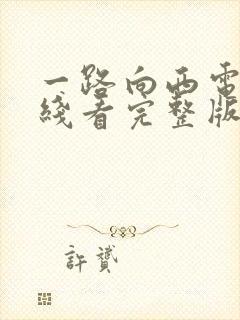 一路向西電
綫看完整版
許贊